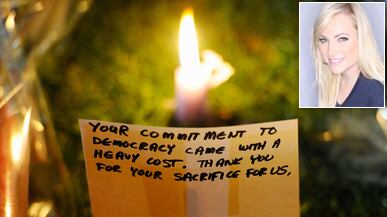 YOUR COMMITMENT TO
DEMOCRACY CAME WITH A
HEAVY COST. THANK YOU
FOR YOUR SACRIFICE FOR US,